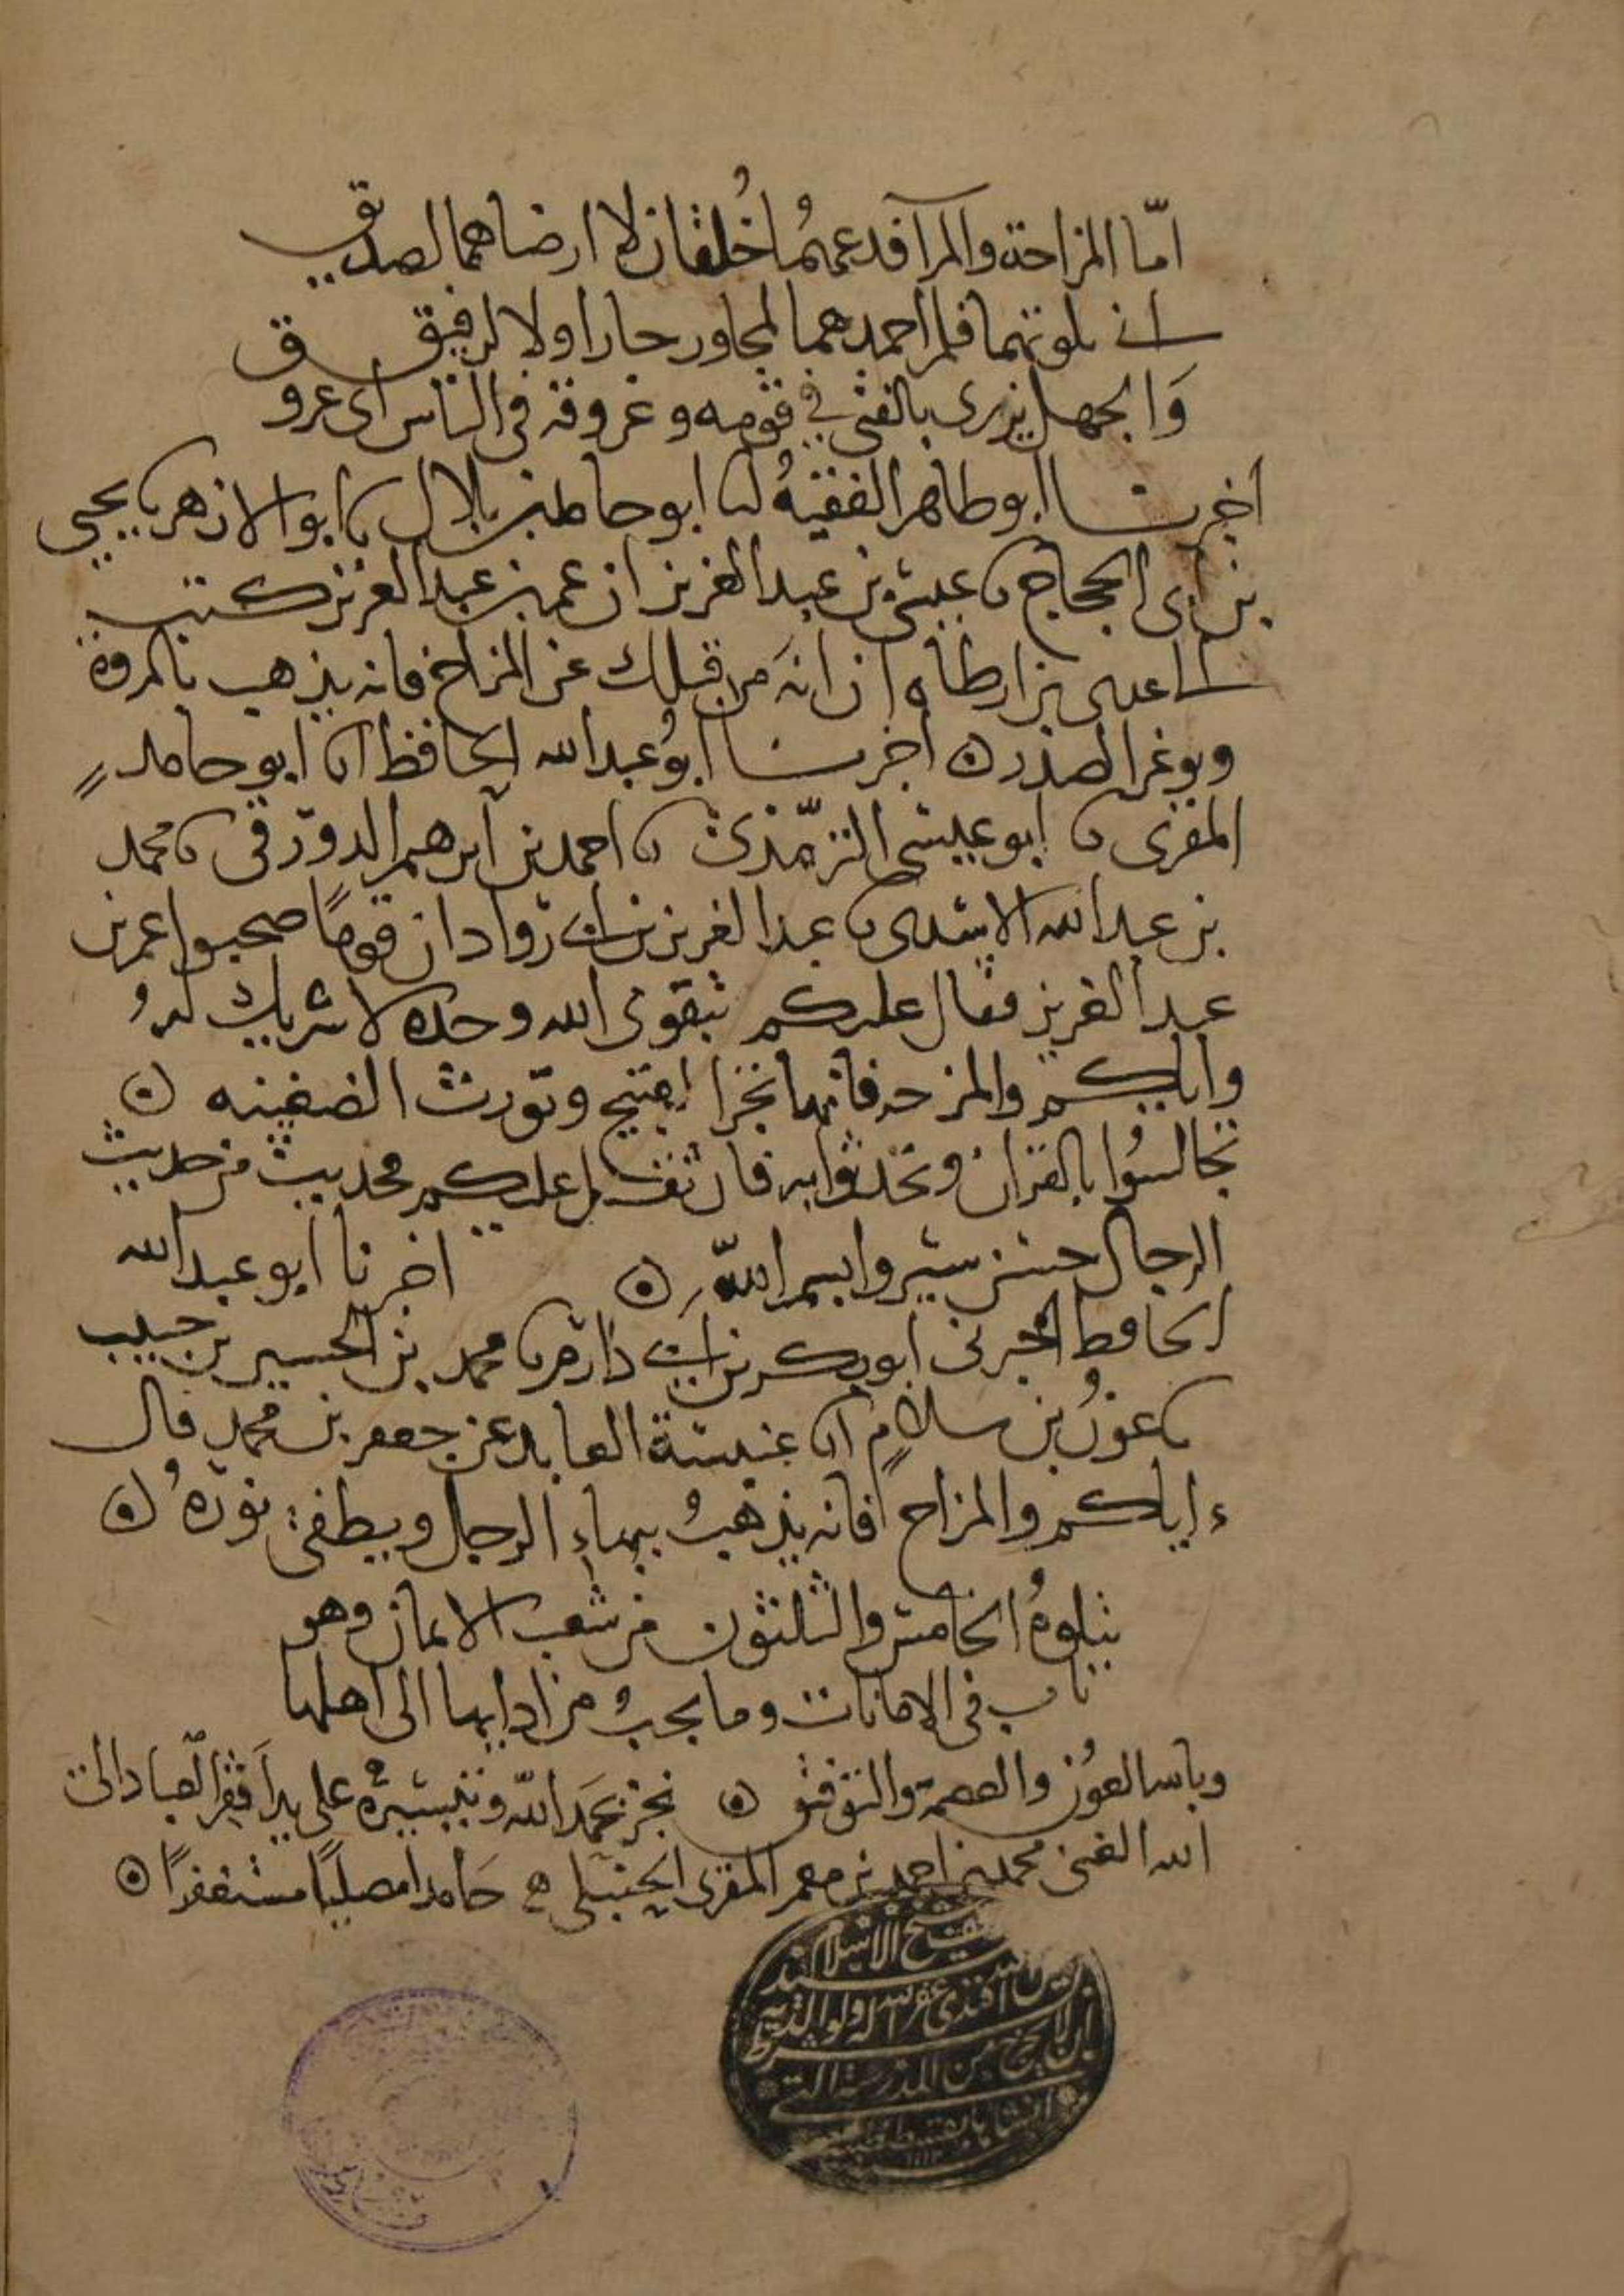 امّا المزاحة والمرآ فدعهُما خُلقان لا ارضاهما لصديق
انى بلوتهما فلم احمدهما لمجاور جارا ولا لرفيق
وَالجهل يزرى بالفتى في قومه وعروقه في الناس اى عروق
اخبرنا ابو طاهر الفقيهُ انا ابو حامد بن بلال نا ابو الازهر نا يحيى
بن ابى الحجاج نا عيسى بن عبد العزيز ان عمر بن عبد العزيز كتب
الى عدى بن ارطاه ان انهَ من قبلك عن المزاح فانه يذهب بالمروة
ويوغر الصدر ه اخبرنا ابوُ عبد الله الحافظ انا ابو حامد
المقرى نا ابو عيسى الترمّذى نا احمد بن ابرهيم الدورقى نا محمد
بن عبد الله الاسدى نا عبد العزيز بن ابى رواد ان قومًا صحبوا عمر بن
عبد العزيز فقال عليكم بتقوى الله وحده لا شريك لهُ
واياكم والمزحه فانها تجر القبيح وتورث الضغينه ه
تجالسُوا بالقران وتحدثوا به فان ثقل عليكم فحديث من حديث
الرجال حسن سيروا بسم اللّه ه اخبرنا ابو عبد الله
الحافظ اخبرنى ابو بكر بن ابى دارم نا محمد بن الحسين بن حبيب
نا عونُ بن سلام انا عنبسة العابد عن جعفر بن محمد قال
ءاياكم والمزاح فانه يذهبُ ببهاء الرجل ويطفى نورهُ ه
يتلوهُ الخامس والثلثون من شعب الايمان وهو
باب فى الامانات وما يجبُ من ادايها الى اهلها
وبالله العوُن والعصمة والتوفيق ه نجز بحمَد اللّه وتيسيره على يد اَفقر العباد الى
الله الغنى محمد بن احمد بن معمر المقرى الحنبلى حَامدا مصليًا مستغفرًا ه
شيخ الاسلام
افندى غفر الله له ولوالديه
بشرط ان لا يخرج من المدرسة التى
انشاها بقسطنطينية